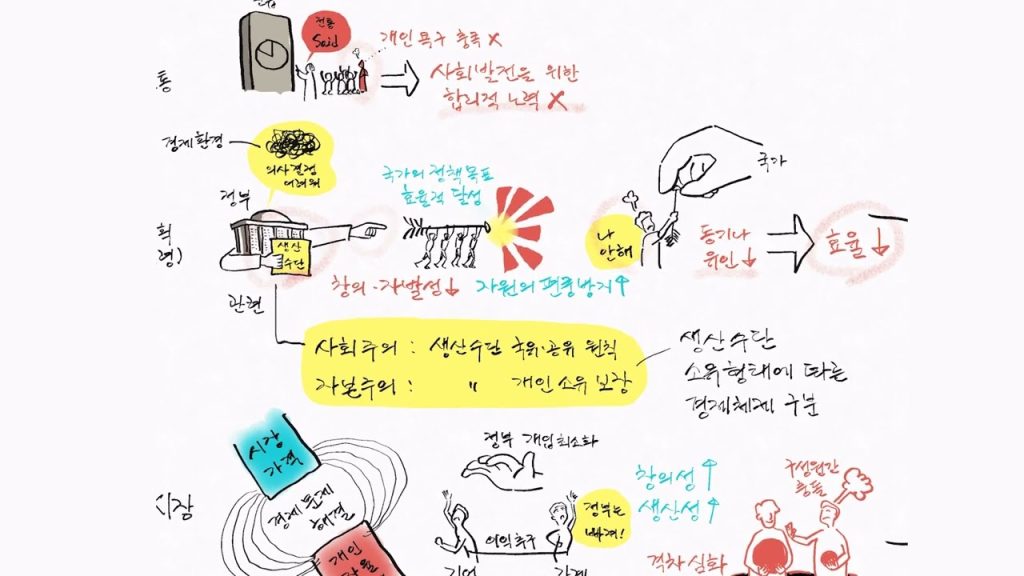 전통
Said
개인 욕구 충족 X
사회발전을 위한
합리적 노력 X
통
경제환경
의사결정
어려워
정부
생산
수단
관련
획
령)
국가의 정책목표
효율적 달성
창의·자발성↓
자원의 편중방지↑
국가
나
안해
동기나
유인↓
효율↓
사회주의 : 생산수단 국유·공유 원칙
자본주의 : 〃 개인 소유 보장
생산수단
소유형태에 따른
경제체제 구분
시장
시장
가격
경제문제
해결
개인
정부 개입 최소화
정부는
빠져!
이익추구
기업
가계
창의성↑
생산성↑
구성원간
충돌
격차 심화